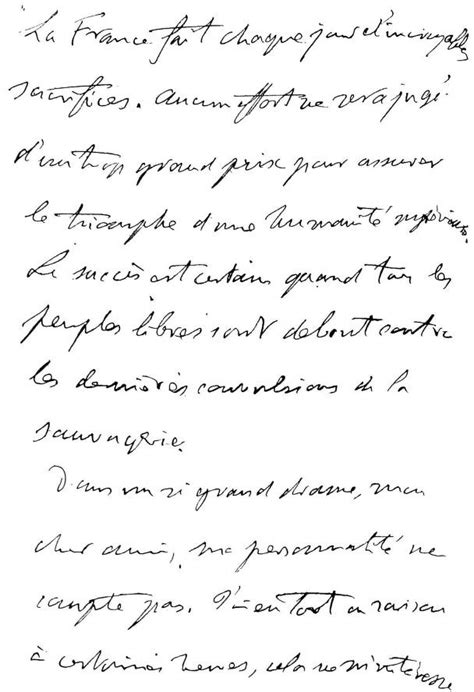 "La France fait chaque jour d'incroyables
sacrifices. Aucun effort ne sera jugé
d'un trop grand prix pour assurer
le triomphe d'une humanité supérieure.
Le succès est certain quand tous les
peuples libres sont debout contre
les dernières convulsions de la
sauvagerie.
Dans un si grand drame, mon
cher ami, ma personnalité ne
compte pas. J'ai eu tort ou raison
à certaines heures, cela ne m'intéresse